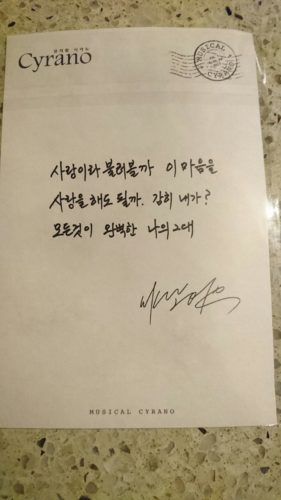 뮤지컬 시라노
Cyrano
MUSICAL
CYRANO
사랑이라 불러볼까 이 마음을
사랑을 해도 될까. 감히 내가?
모든것이 완벽한 나의 그대
MUSICAL CYRANO